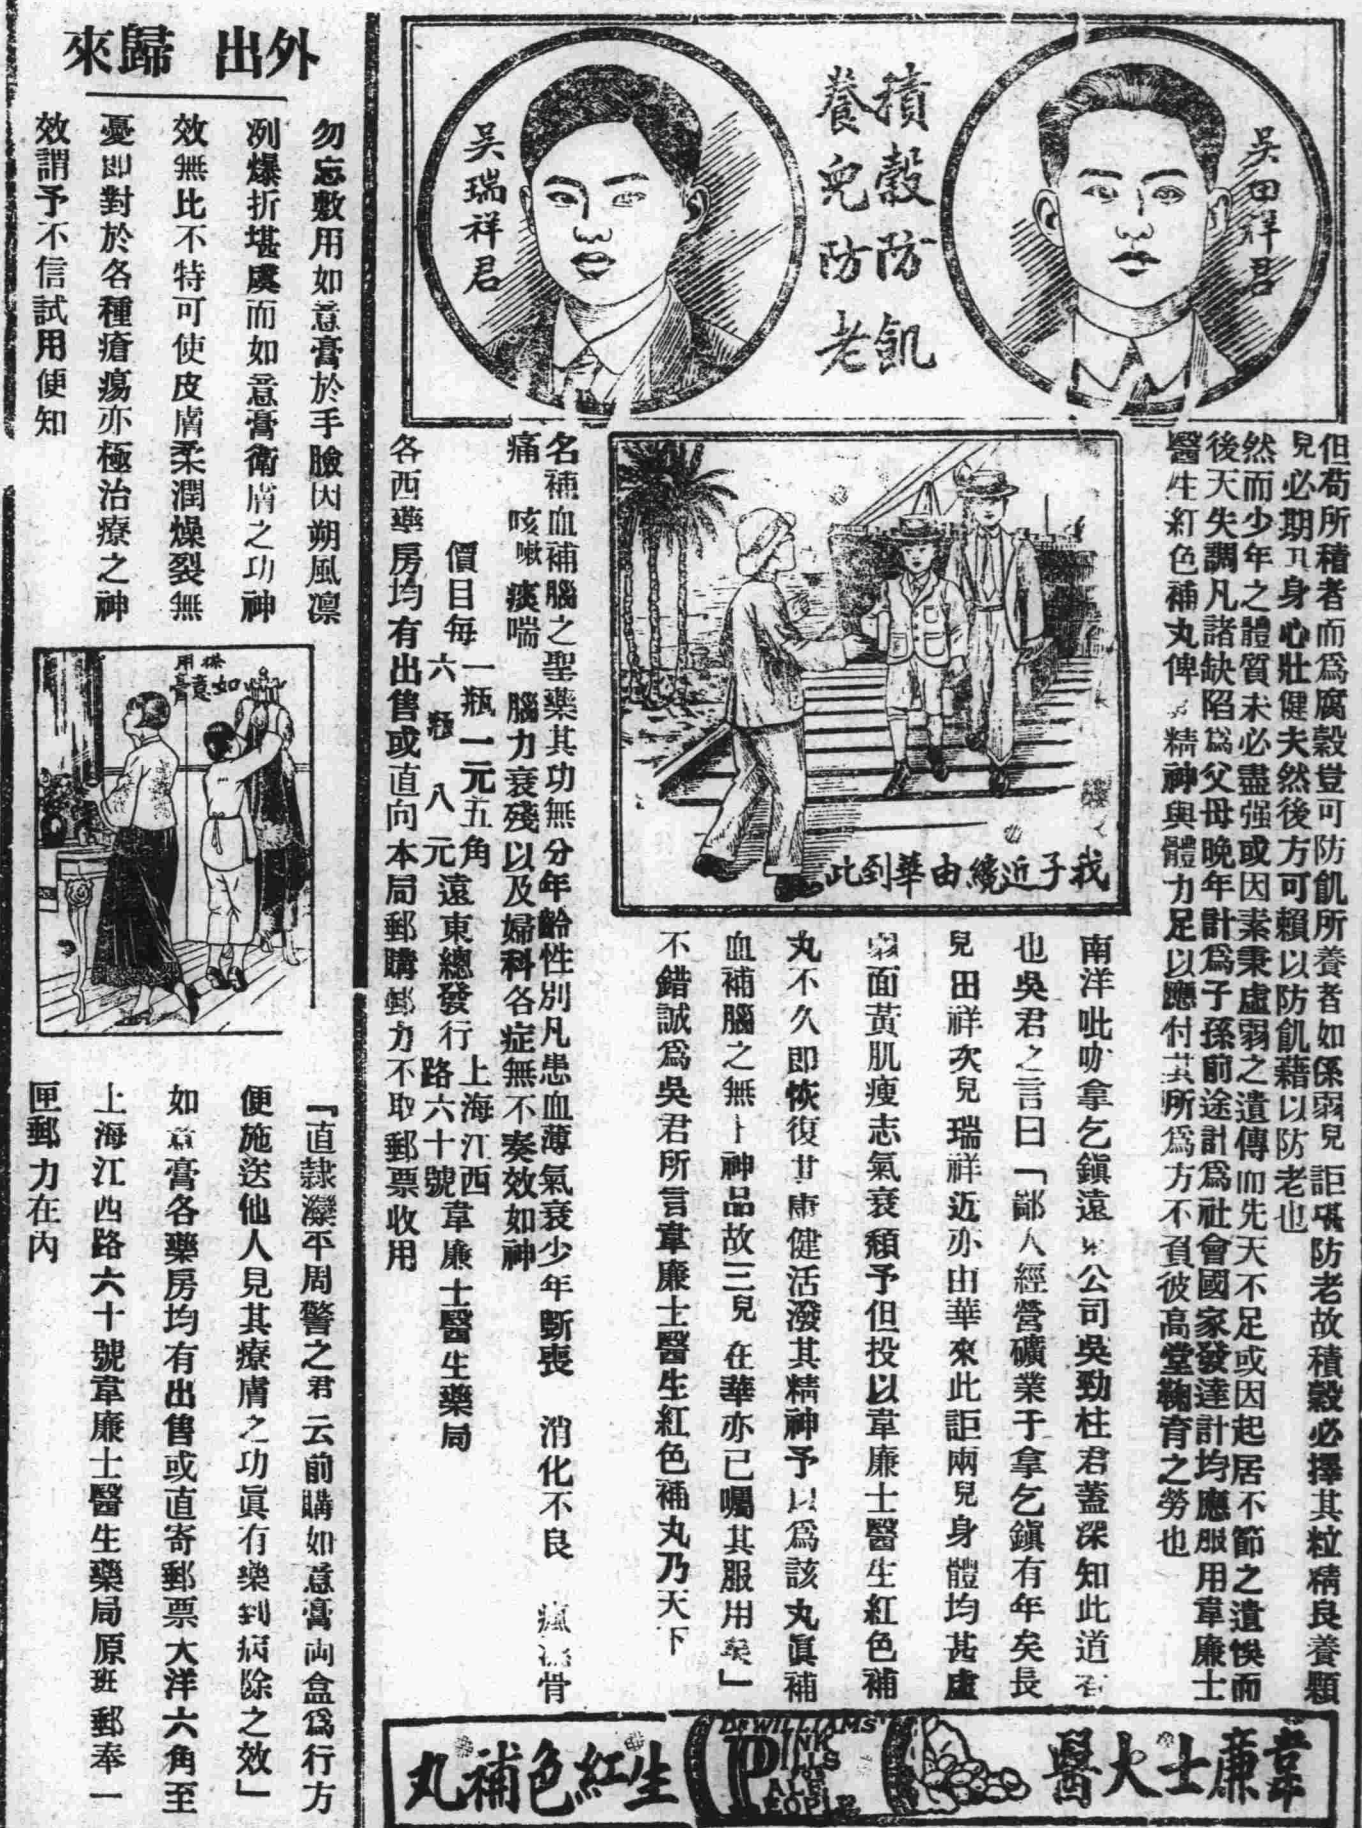 積穀防飢
養兒防老
吳田祥君
吳瑞祥君
但苟所積者而爲腐穀豈可防飢所養者如係弱兒詎堪防老故積穀必擇其粒精良養顆
兒必期其身心壯健夫然後方可賴以防飢藉以防老也
然而少年之體質未必盡强或因素秉虛弱之遺傳而先天不足或因起居不節之遺悞而
後天失調凡諸缺陷爲父母晚年計爲子孫前途計爲社會國家發達計均應服用韋廉士
醫生紅色補丸俾其精神與體力足以應付其所爲方不負彼高堂鞠育之勞也
我子近纔由華到此
南洋吡叻拿乞鎭遠公司吳勁柱君蓋深知此道者
也吳君之言曰「鄙人經營礦業于拿乞鎭有年矣長
兒田祥次兒瑞祥近亦由華來此詎兩兒身體均甚虛
弱面黃肌瘦志氣衰頹予但投以韋廉士醫生紅色補
丸不久即恢復其康健活潑其精神予以爲該丸眞補
血補腦之無上神品故三兒在華亦已囑其服用矣」
不錯誠爲吳君所言韋廉士醫生紅色補丸乃天下
名補血補腦之聖藥其功無分年齡性別凡患血薄氣衰少年斲喪 消化不良 瘋濕骨
痛 咳嗽 痰喘 腦力衰殘以及婦科各症無不奏效如神
價目每一瓶一元五角
六瓶八元遠東總發行上海江西
路六十號韋廉士醫生藥局
各西藥房均有出售或直向本局郵購郵力不取郵票收用
韋廉士大醫生紅色補丸
DR WILLIAMS'
PINK
PILLS
PALE
PEOPLE
外出歸來
勿忘敷用如意膏於手臉因朔風凛
冽爆折堪虞而如意膏衛膚之功神
效無比不特可使皮膚柔潤燥裂無
憂即對於各種瘡瘍亦極治療之神
效謂予不信試用便知
搽用
如意膏
「直隸灤平周警之君云前購如意膏兩盒爲行方
便施送他人見其療膚之功眞有藥到病除之效」
如意膏各藥房均有出售或直寄郵票大洋六角至
上海江西路六十號韋廉士醫生藥局原班郵奉一
匣郵力在內